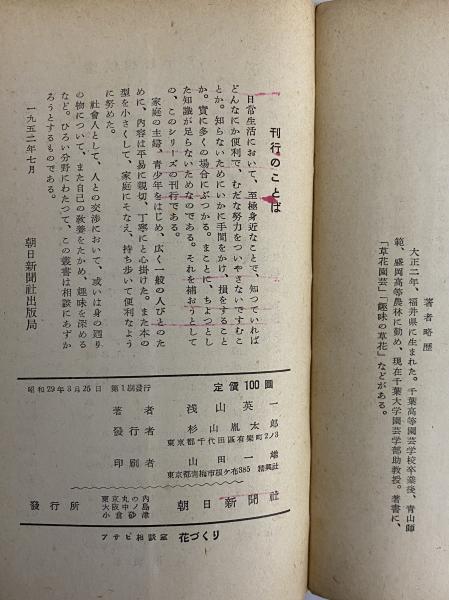 著者略歴
大正二年、福井県に生まれた。千葉高等園芸学校卒業後、青山師
範、盛岡高等農林に勤め、現在千葉大学園芸学部助教授。著書に、
「草花園芸」「趣味の草花」などがある。
刊行のことば
日常生活において、至極身近なことで、知つていれば
どんなにか便利で、むだな努力をついやさないですむこ
とか。知らないためにいかに手間をかけ、損をすること
か。實に多くの場合にぶつかる。まことに、ちよつとし
た知識が足らないためなのである。それを補おうとして
の、このシリーズの刊行である。
家庭の主婦、青少年をはじめ、広く一般の人びとのた
めに、内容は平易に親切、丁寧にと心掛けた。また本の
型を小さくして、家庭にそなえ、持ち歩いて便利なよう
に努めた。
社會人として、人との交渉において、或いは身の廻り
の物について、また自己の教養をたかめ、趣味を深める
など。ひろい分野にわたつて、この叢書は相談にあずか
ろうとするものである。
一九五二年七月
朝日新聞社出版局
定價100圓
昭和29年3月25日 第1刷發行
著者 浅山英一
發行者 杉山胤太郎
東京都千代田區有樂町2ノ3
印刷者 山田一雄
東京都青梅市根ケ布385 精興社
發行所 東京丸の内 大阪中ノ島 小倉砂津 朝日新聞社
アサヒ相談室 花づくり